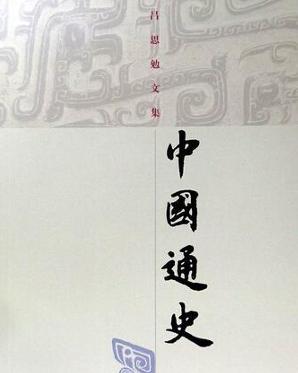 吕思勉文集
中國通史